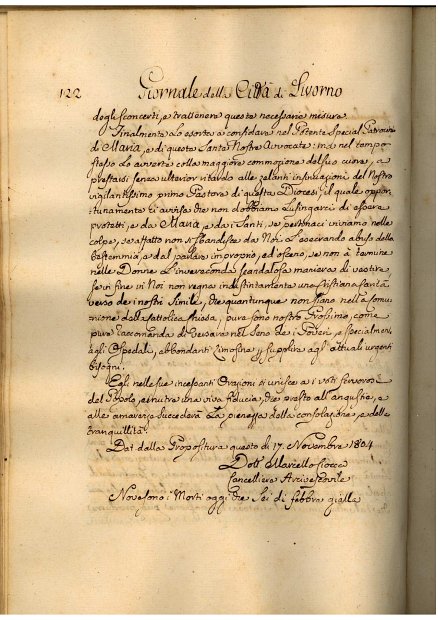 122 Giornale della Città di Livorno
degli sconcerti, e trattenere questo necessario misura
Finalmente Lo esorta a confidare nel Potente Special Patrocinio
di Maria, e di questa Santa Nostra Avvocata: ind nel tempo
stesso Lo avverte colla maggiore commozione del suo cuore, a
prestarsi senza ulterior ritardo alle zelanti insinuazioni del Nostro
vigilantissimo primo Pastore di questa Diocesi, il quale oppor
tunamente Ci avvisa che non dobbiamo Lusingarci di essere
protetti, e da Maria e da i Santi, se pertinaci viviamo nelle
colpe, se affatto non si sbandisce da Noi L'esecrando abuso della
bestemmia, e del parlare improprio, ed osceno, se non à termine
nelle Donne L'invereconda scandalosa maniera di vestire,
se in fine in Noi non regna indistintamente una Cristiana Carità
verso dei nostri Simili, che quantunque non siano nella Comu
nione della Cattolica Chiesa, pure sono nostro Prossimo, come
pure raccomanda di versare nel Seno de i Poveri, e specialmente
agli Ospedali, abbondanti Limosine per supplire agl'attuali urgenti
bisogni.
Egli nelle sue incessanti Orazioni si unisce a i voti fervorosi
del Popolo, e nutre una viva fiducia, che presto all'angustie, e
alle amarezze succederà La pienezza della consolazione, e della
tranquillità.
Dat. dalla Propositura questo dì 17. Novembre 1804
Dott. Marcello
Cancelliere Arcivescovile
Nove sono i Morti oggi che Sei di febbre gialla